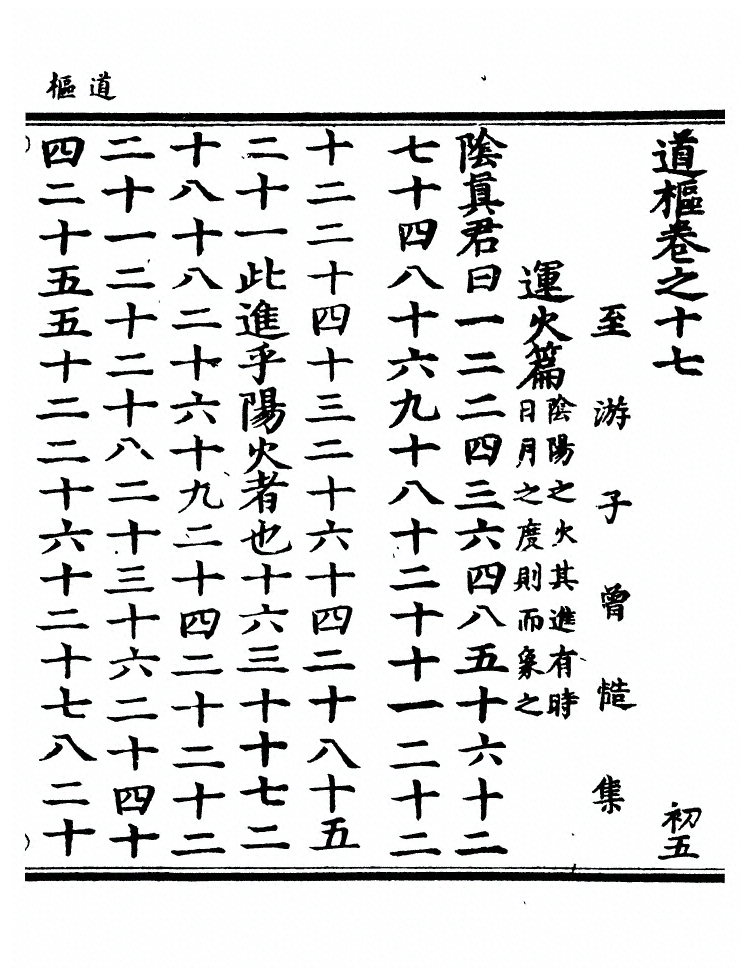 道樞
道樞卷之十七 初五
至游子曾慥集
運火篇
陰陽之火其進有時
日月之度則而象之
陰眞君曰一二二四三六四八五十六十二
七十四八十六九十八十二十十一二十二
十二二十四十三二十六十四二十八十五
二十一此進乎陽火者也十六三十十七二
十八十八二十六十九二十四二十二十二
二十一二十二十八二十三十六二十四十
四二十五五十二二十六十二十七八二十